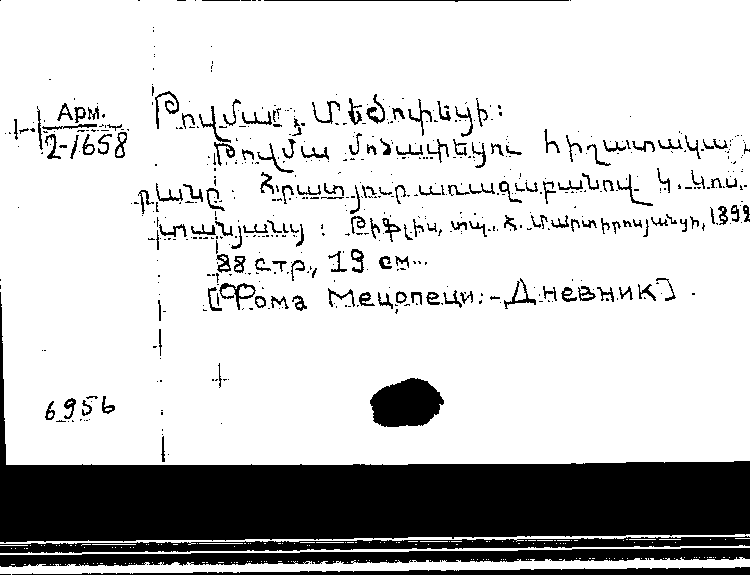 Арм.
2-1658
Թովմայ Մեծոփեցի:
Թովմա Մոնափեցու հիշատակա
րանը: Հրատ. յուր առաջաբանով Կ. Կոս.
տանյանց: Թիֆլիս, տպ. Մ. Մարտիրոսյանցի, 1892
88 стр., 19 см..
[Фома Мецопеци. - Дневник].
6956